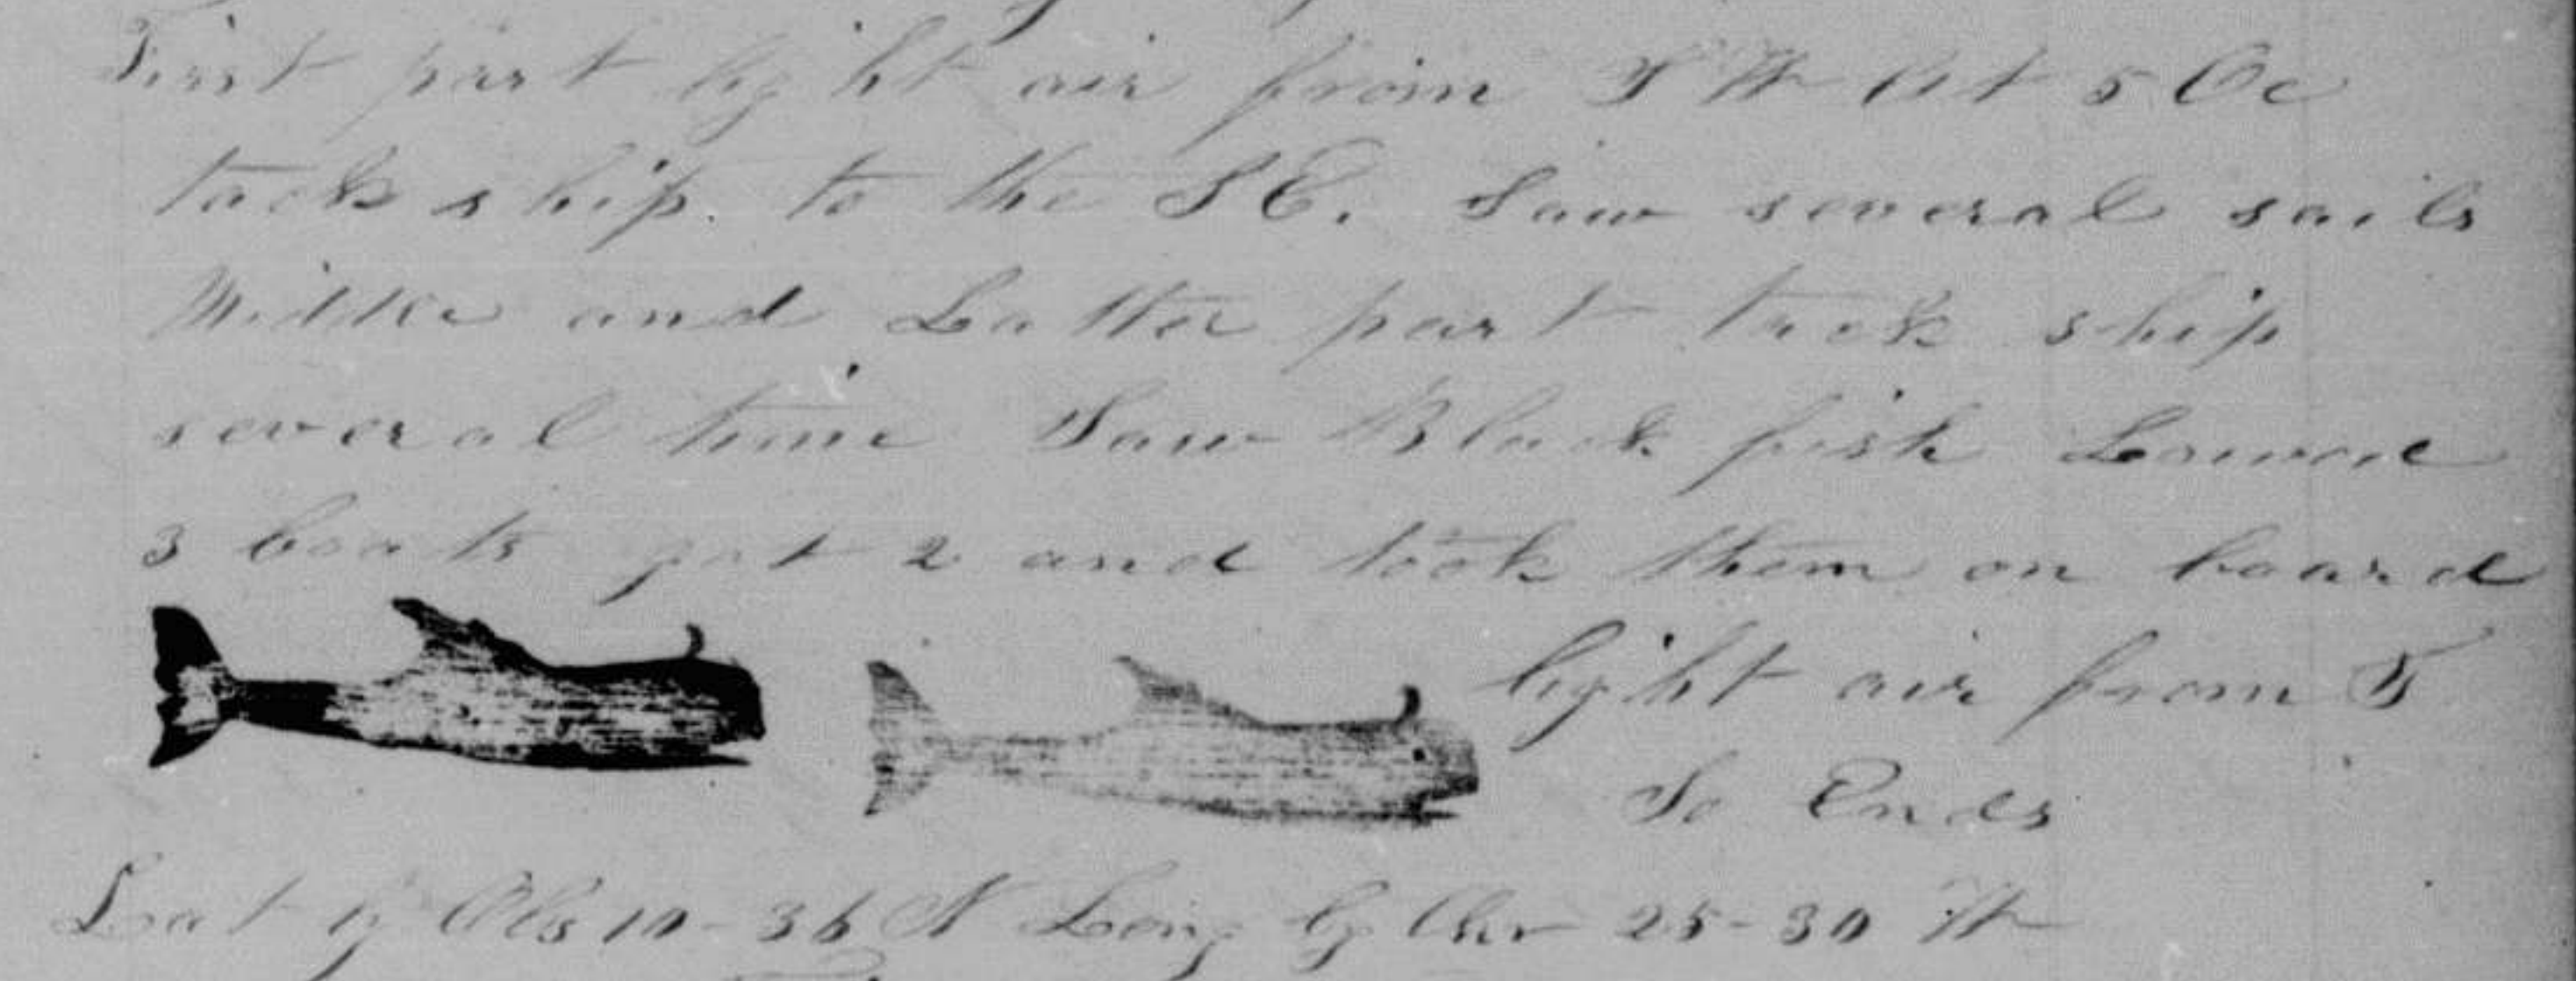 First part light air from S W At 5 Oc
tack ship. to the S E. Saw several sails
Middle and Latter part tack ship
several time Saw Black fish Lowered
3 boats got 2 and took them on board
light air from S
So Ends
Lat by Obs 10-36 N Long by Chr 25-30 W